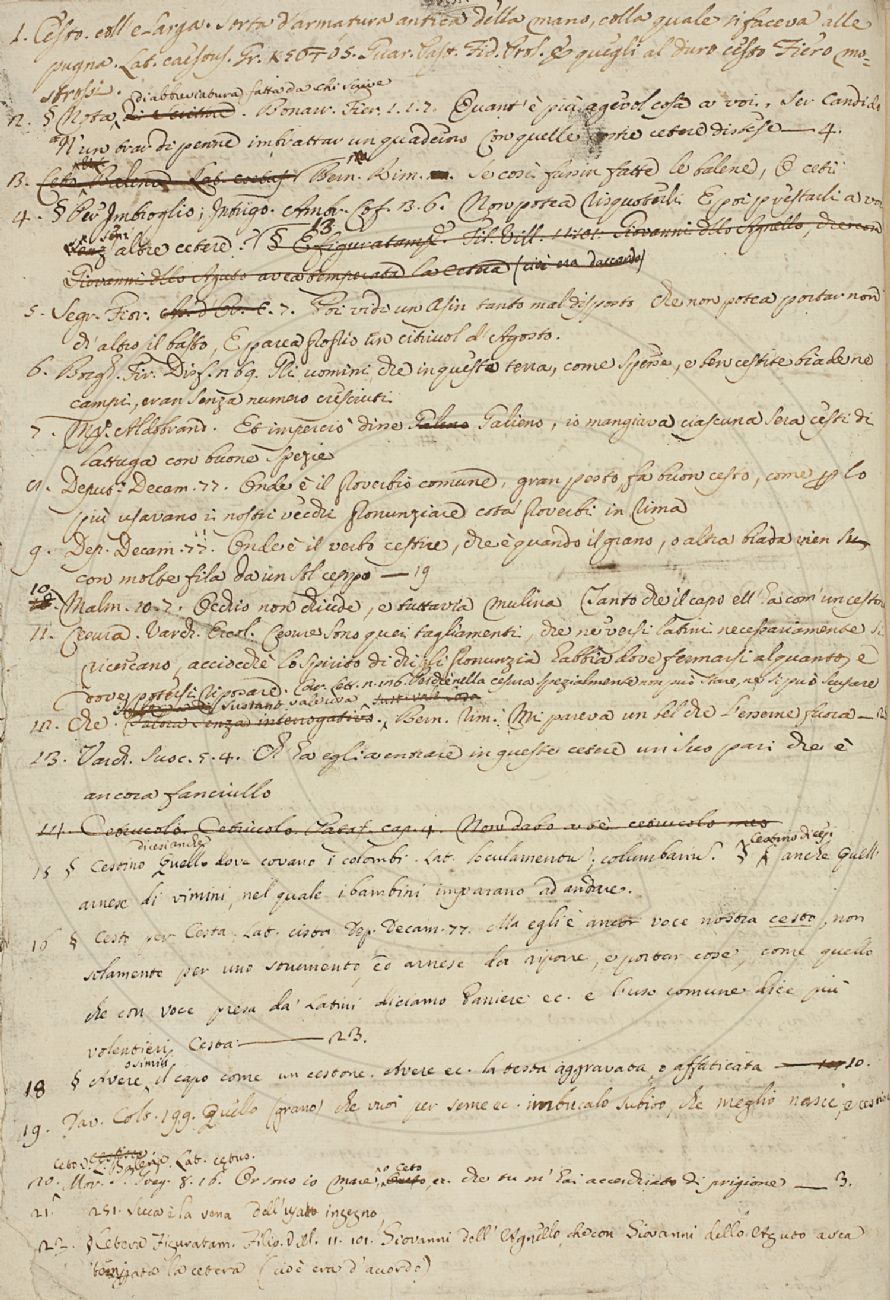 1. Cesto. coll'e larga. Sorta d'armatura antica della mano, colla quale si faceva alle
pugna. Lat. caestus. Gr. Guar. Past. Fid. Prol. E quegli al duro cesto Fiero mo=
strossi.
di abbreviatura fatta da chi scrive
2. § Nota di scrittore. Buonar. Fier. 1. 1. 2. Quant'è più agevol cosa a voi, Ser Candido
un trar di penne imbrattar un quaderno Con quelle vostre cetere distese — 4.
3. Ceto. Balena. Lat. cetus. Bern. Rim. Se così fussin fatte le balene, O ceti
4. § Per Imbroglio; Intrigo. Ambr. Cof. 3. 6. Non potea Risquotersi E poi prestarli a voi
senz' altre cetere. 13 § E figuratam. Fil. Vill. 11. 101. Giovanni dello Agnello, che con
Giovanni dello Aguto avea temperata la cetera (cioè era d'accordo)
5. Segr. Fior. As. d'Or. c. 7. Poi vidi un Asin tanto mal disposto, Che non potea portar non
ch'altro il basto, E parea proprio un citriuol d'Agosto.
6. Borgh. Fir. Disf. n 69. Gli uomini che in questa terra, come spesse, e ben cestite biade ne
campi, eran senza numero cresciuti
7. M. Aldobrand. Et imperciò disse Galieno, io mangiava ciascuna sera cesti di
lattuga con buone spezie
8. Deput. Decam. 77. Onde è il proverbio comune, gran pesto, fa buon cesto, come p lo
più usavano i nostri vecchi pronunziare cota' proverbi in Rima
9. Dep. Decam. 77. Onde è il verbo cestire, che è quando il grano, o altra biada vien su
con molte fila da un sol ceppo — 19
10. Malm. 10. 7. Occhio non chiude, e tuttavia mulina Tanto che il capo ell'ha com'un cestone
11. Cesura. Varch. Ercol. Cesure sono quei tagliamenti, che ne' versi latini necessariamente si
ricercano, acciocchè lo spirito di chi li pronunzia habbia dove fermarsi alquanto, e
dove potersi riposare. nella cesura spezialmente non può stare, nè si può scusare
12. Che. senza interrogativo. Bern. Rim. Mi pareva un bel che l'esserne fuora — 12
13. Varch. Suoc. 5. 4. Ch ha egli a entrare in queste cetere un suo pari che è
ancora fanciullo
14. Cetriuolo. Cetriuolo. Pataf. cap. 4. Non dabo a te cetriuolo meo
dicesi anche Cestino dicesi
15 § Cestino Quello dove covano i colombi. Lat. loculamentu, columbariu. § anche quell'
arnese di vimini, nel quale i bambini imparano ad andare.
16 § Cesto per Cesta. Lat. cista Dep. Decam. 77. Ma egli è ancor voce nostra cesto, non
solamente per uno strumento, ed arnese da riporre, e portar cose, come quello
che con voce presa da' Latini diciamo Paniere ec. e l'uso comune dice più
volentieri Cesta — 23.
o simili
18 § Avere il capo come un cestone. Avere ec. la testa aggravata, o affaticata — 10.
19. Dav. Colt. 199. Quello (grano) che vuoi per seme ec. imbucalo subito, che meglio nasce, e cestisce
Ceto. Balena. Lat. cetus.
20. Mor. S. Greg. 8. 16. Or sono io mare, o ceto ec. che tu m'hai accerchiato di prigione — 3.
21. 251. Secca è la vena dell'usato ingegno
22. § Cetera Figuratam. Filip. Vill. 11. 101. Giovanni dell'Agnello, che con Giovanni dello Aguto avea
temperata la cetera (cioè era d'accordo)